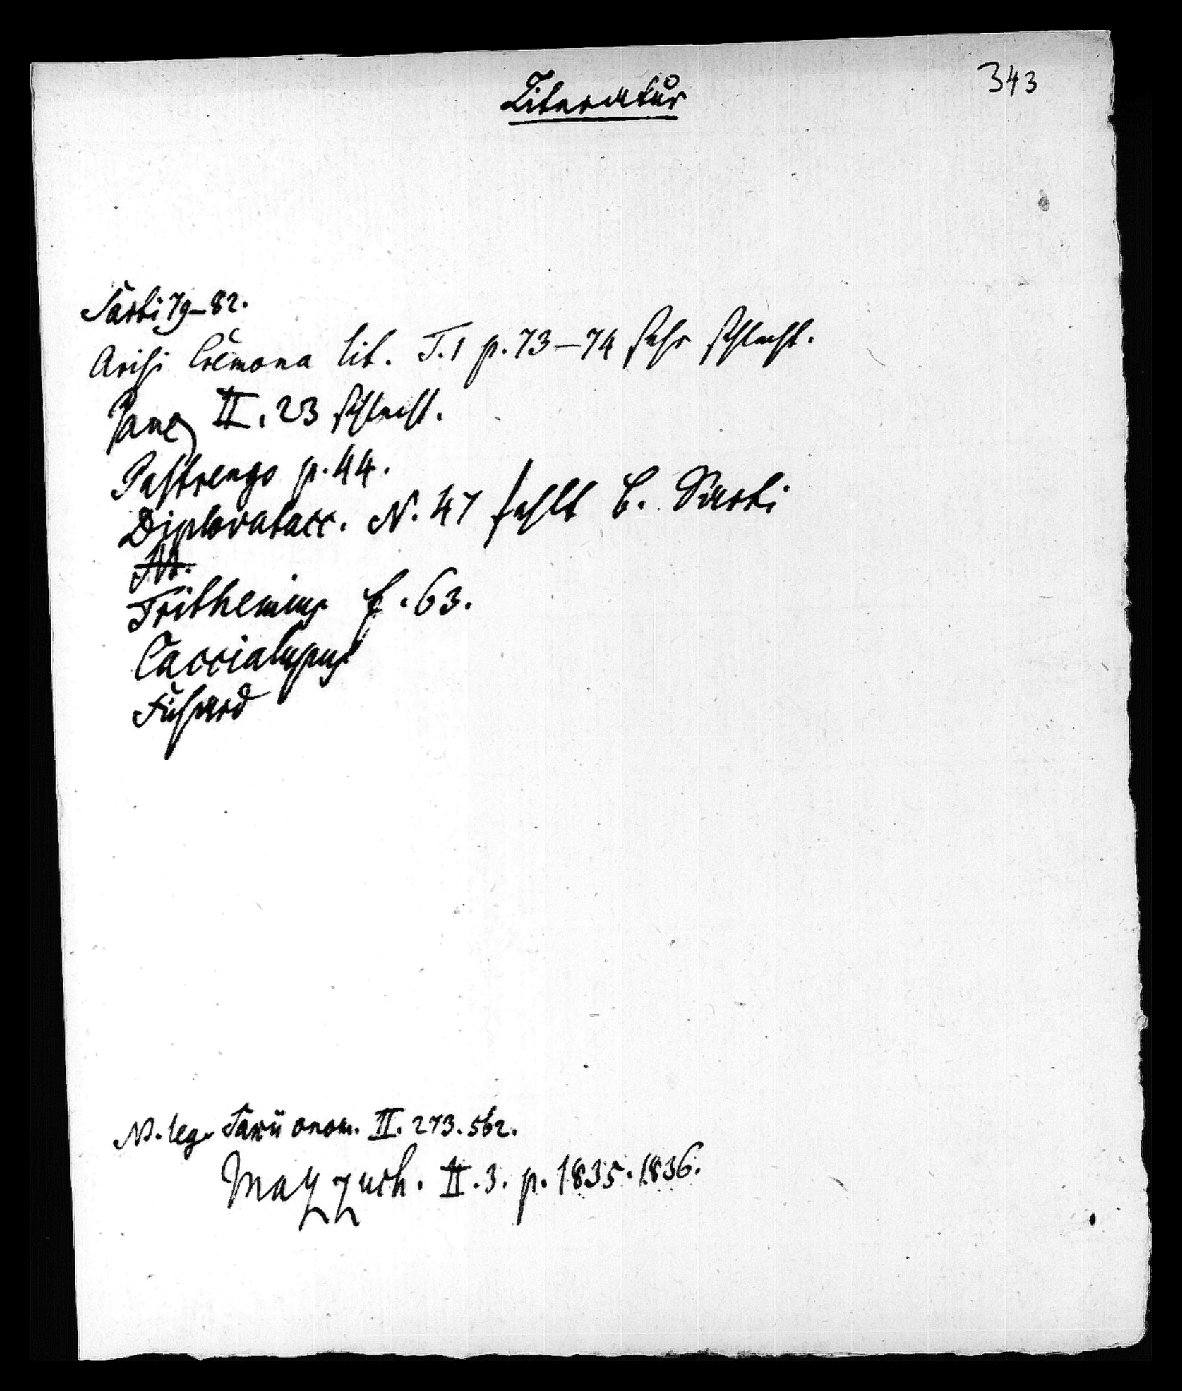 343
Literatur
Sarti 79–82.
Arisi Cremona lit. T. 1 p. 73–74 sehr schlecht.
Panz II. 23 schlecht.
Pastrengo p. 44.
Diplovatacc. N. 47 fehlt b. Sarti
Trithemius f. 63.
Caccialupus
Fichard
N. leg. Saxii onom. II. 273. 562.
Mazzuch. II. 3. p. 1835. 1836.